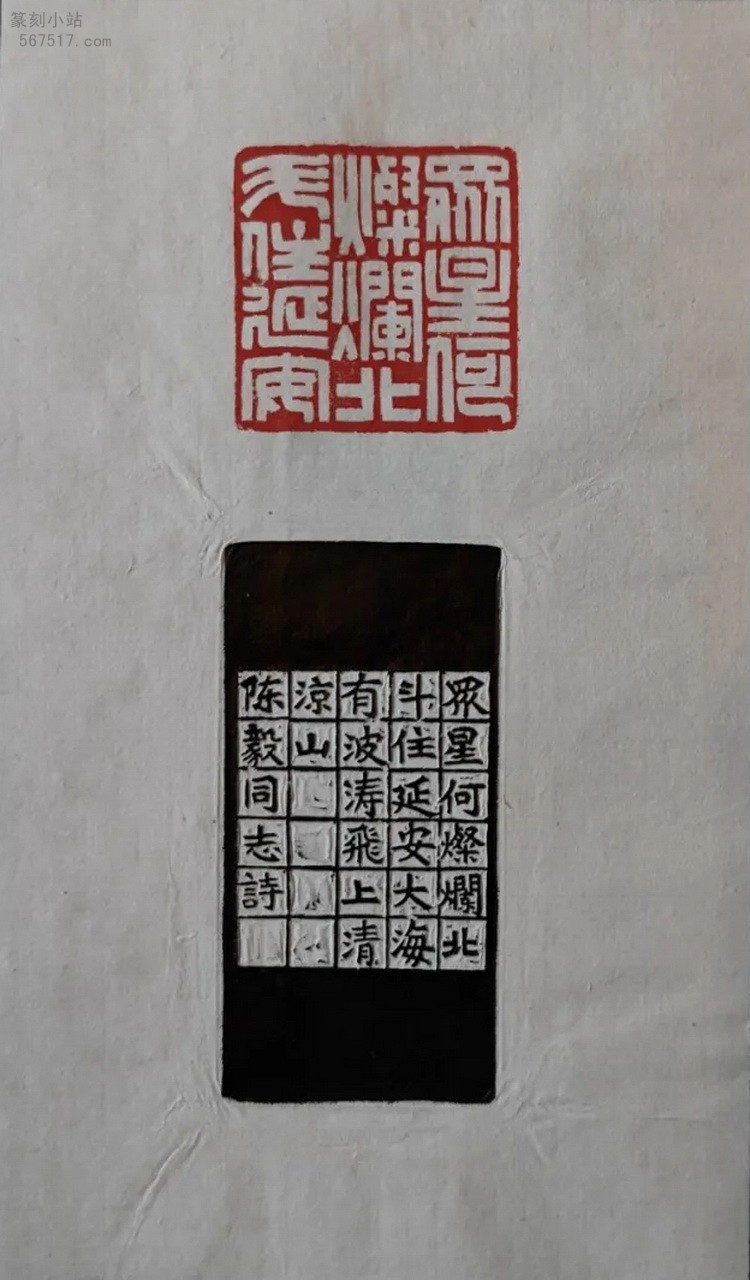 篆刻小站
567517.com
眾星何
燦爛北
斗住延安
眾星何燦爛北
斗住延安大海
有波涛飛上清
涼山
陈毅同志詩